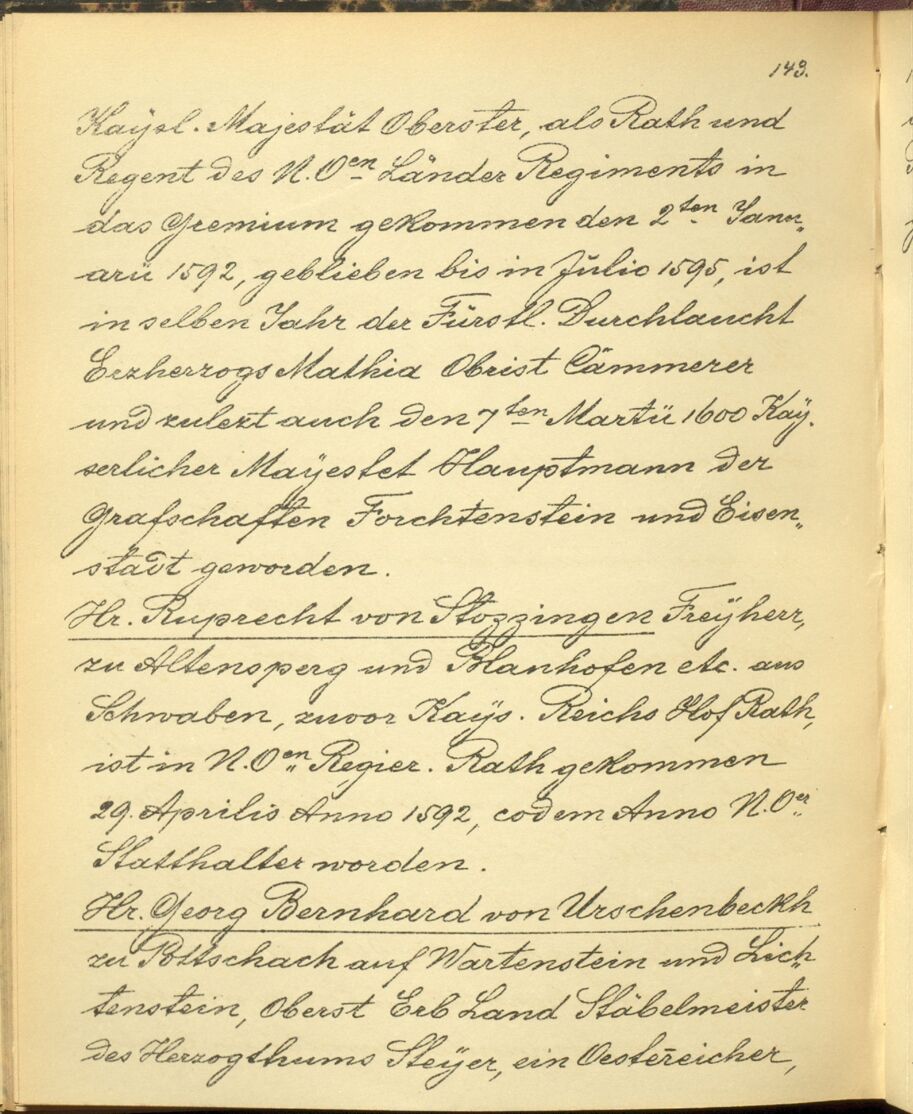 143.
Kaÿsl. Majestät Oberster, als Rath und
Regent des N.Oen Länder Regiments in
das Gremium gekommen den 2ten Janu„
arii 1592, geblieben bis in Julio 1595, ist
in selben Jahr der Fürstl. Durchlaucht
Erzherzogs Mathia Obrist Cämmerer
und zulezt auch den 7ten Martii 1600 Kaÿ.
serlicher Maÿestet Hauptmann der
Grafschaften Forchtenstein und Eisen„
stadt geworden.
Hr. Ruprecht von Stozzingen Freÿherr,
zu Altensperg und Blanhofen etc. aus
Schwaben, zuvor Kaÿs. Reichs Hof Rath,
ist in N.Oen„ Regier. Rath gekommen
29. Aprilis Anno 1592, eodem Anno N.Oer„
Statthalter worden.
Hr. Georg Bernhard von Urschenbeckh
zu Pottschach auf Wartenstein und Lich„
tenstein, Oberst Erb Land Stäbelmeister
des Herzogthums Steÿer, ein Oestereicher,